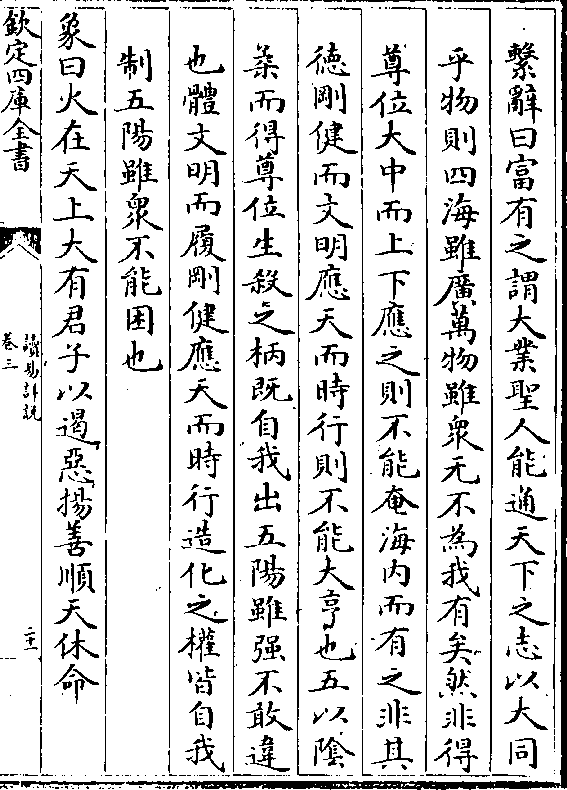 繫辭曰富有之謂大業聖人能通天下之志以大同
乎物則四海雖廣萬物雖衆无不為我有矣然非得
尊位大中而上下應之則不能奄海内而有之非其
徳剛健而文明應天而時行則不能大亨也五以隂
柔而得尊位生殺之柄既自我出五陽雖强不敢違
也體文明而履剛健應天而時行造化之權皆自我
制五陽雖衆不能困也
象曰火在天上大有君子以遏惡揚善順天休命
欽定四庫全書
讀易詳説
卷三
二十一